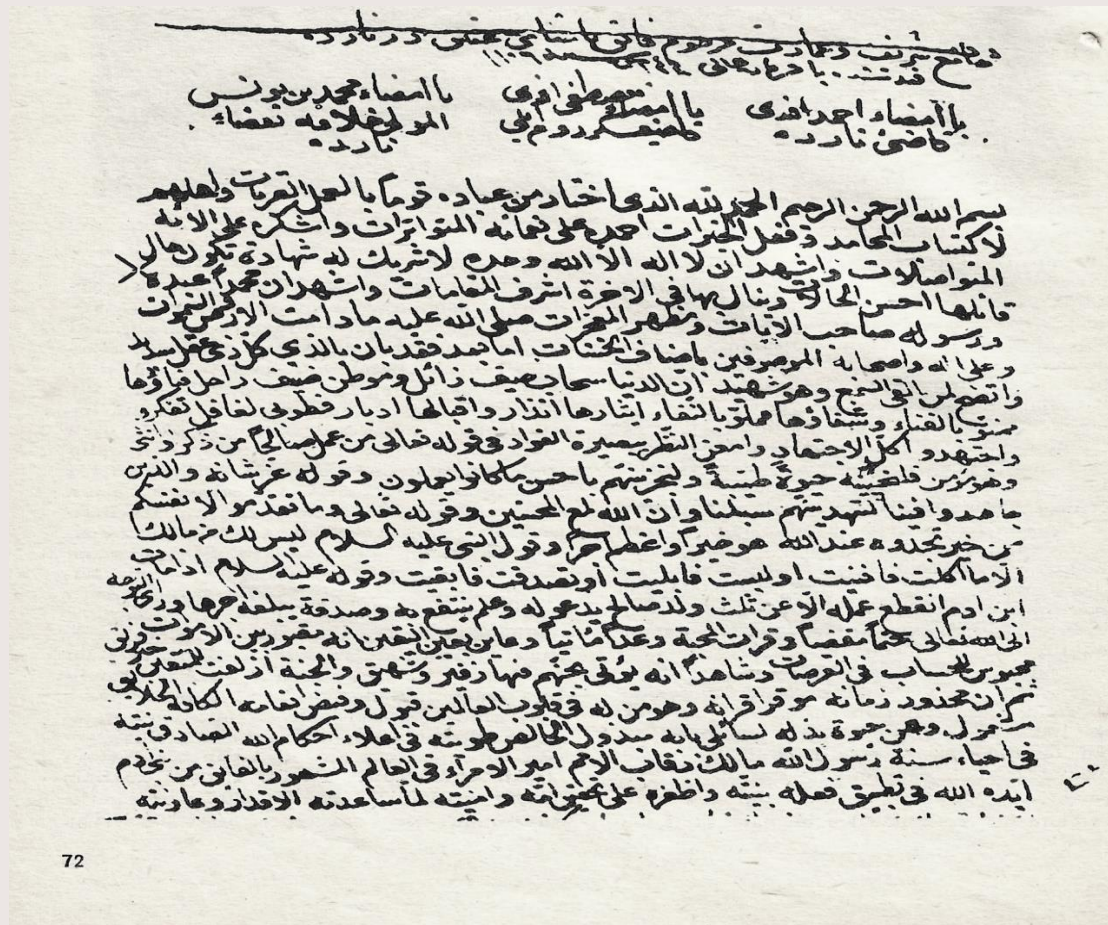 جامع شريف وعمارت مرحوم فائق پاشا
باامضاء احمد افندى باامضاء مصطفى افندى باامضاء محمد بن يونس
قاضئ نارده روم ايلى المولى خلافه بقضاء
نارده
بسم الله الرحمن الرحيم الحمد لله الذى اختار من عباده قوما بالعمل القربات واهلهم
لاكتساب المحامد وفعل الخيرات احمده على نعمائه المتواترات واشكره على الائه
المتواصلات واشهد ان لا اله الا الله وحده لا شريك له شهادة تكون حال
قائلها احسن الحالات وينال بها فى الاخرة اشرف المقامات واشهد ان محمداً عبده
ورسوله صاحب الايات ومظهر المعجزات صلى الله عليه ما دامت الارض والسموات
وعلى اله واصحابه الموصوفين باصناف الحسنات اما بعد فقد بان بالذى كل ذى عقل سديد
واتضح لمن القى السمع وهو شهيد ان الدنيا سحاب صيف زائل وموطن ضيف راحل
بالفناء وشفاؤها مملة بالشفاء ايثارها انذار واقبالها ادبار فطوبى لعاقل تفكر و
واجتهد و اكمل الاجتهاد وامعن النظر ببصيرة الفواد فى قوله تعالى من عمل صالحاً من ذكر وانثى
وهو مؤمن فلنحيينه حيوة طيبة ولنجزينهم باحسن ما كانوا يعملون وقوله عز شانه والذين
جاهدوا فينا لنهدينهم سبلنا وان الله لمع المحسنين وقوله تعالى وما تقدموا لانفسكم
من خير تجدوه عند الله هو خيراً واعظم اجراً وقول النبى عليه السلام ليس لك من مالك
الا ما اكلت فافنيت او لبست فابليت او تصدقت فابقيت وقوله عليه السلام اذا مات
ابن ادم انقطع عمله الا عن ثلث ولد صالح يدعو له وعلم ينتفع به وصدقة يبلغه اجرها وراى
الى الله تعالى حتماً مقضياً وعداً ماتياً وعاين بعين اليقين انه مقبور بين الاموات
محبوس للحساب فى العرصات وشاهداً انه يؤتى بجهنم فيها زفير وشهيق والجنة ازلفت للمتقين
ثم ان زمانه موقر اقرانه وهو من له فى قلوب العالمين قبول وفيض انعامه الكافة
بذله مبذول الخالص طويته فى اعلاء احكام الله الصادق نيته
فى احياء سنة رسول الله مالك رقاب الامم امير الامراء فى العالم المشهور بالفائق
ايده الله فى تطبيق فعله بنيته واظفره على وامنيته لما ساعدته الاقدار وعاونته
72